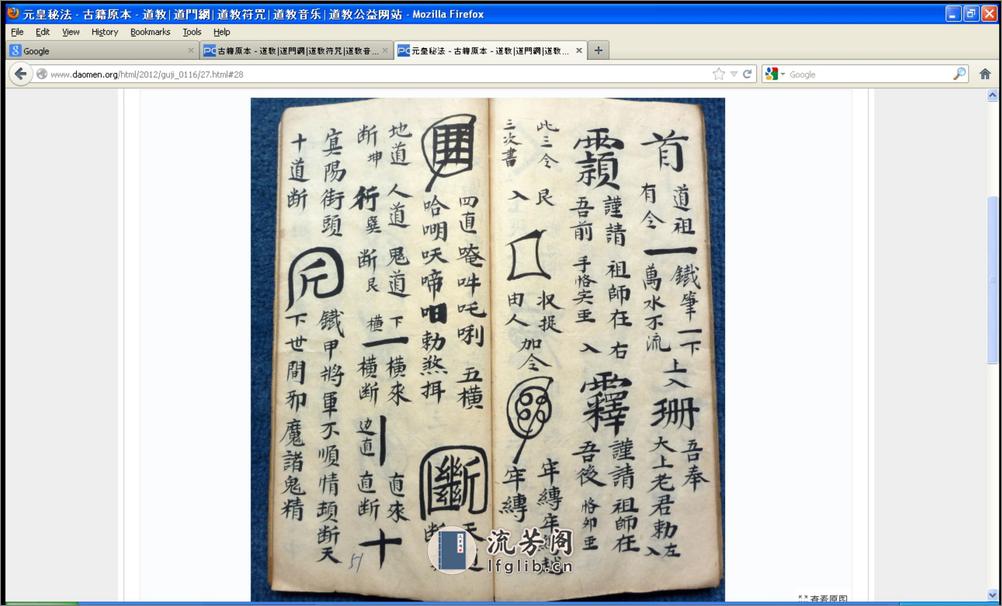 元皇秘法 - 古籍原本 - 道教|道門網|道教符咒|道教音乐|道教公益网站 - Mozilla Firefox
File Edit View History Bookmarks Tools Help
Google
古籍原本 - 道教|道門網|道教符咒|道教音...
元皇秘法 - 古籍原本 - 道教|道門網|道教...
www.daomen.org/html/2012/guji_0116/27.html#28
Google
首
道祖
有令
一
鐵筆一下
萬水不流
上入
珊
吾奉
太上老君勅
左
入
謹請
吾前
祖師在右
手恪
入
謹請
吾後
祖師在
恪卯
此三令
三次書
艮
入
収捉
由人
加令
牢縛牢
牢縛
四直
唵吽吒唎
五橫
哈
啼
勅煞
斷
地道
断坤
人道
行
巽
鬼道
断艮
下
橫
一
橫來
橫断
边直
直來
直断
十
冥陽街頭
十道断
鐵甲將軍不順情
断天
下世間邪魔諸鬼精
51
流芳阁
lfglib.cn
查看原图